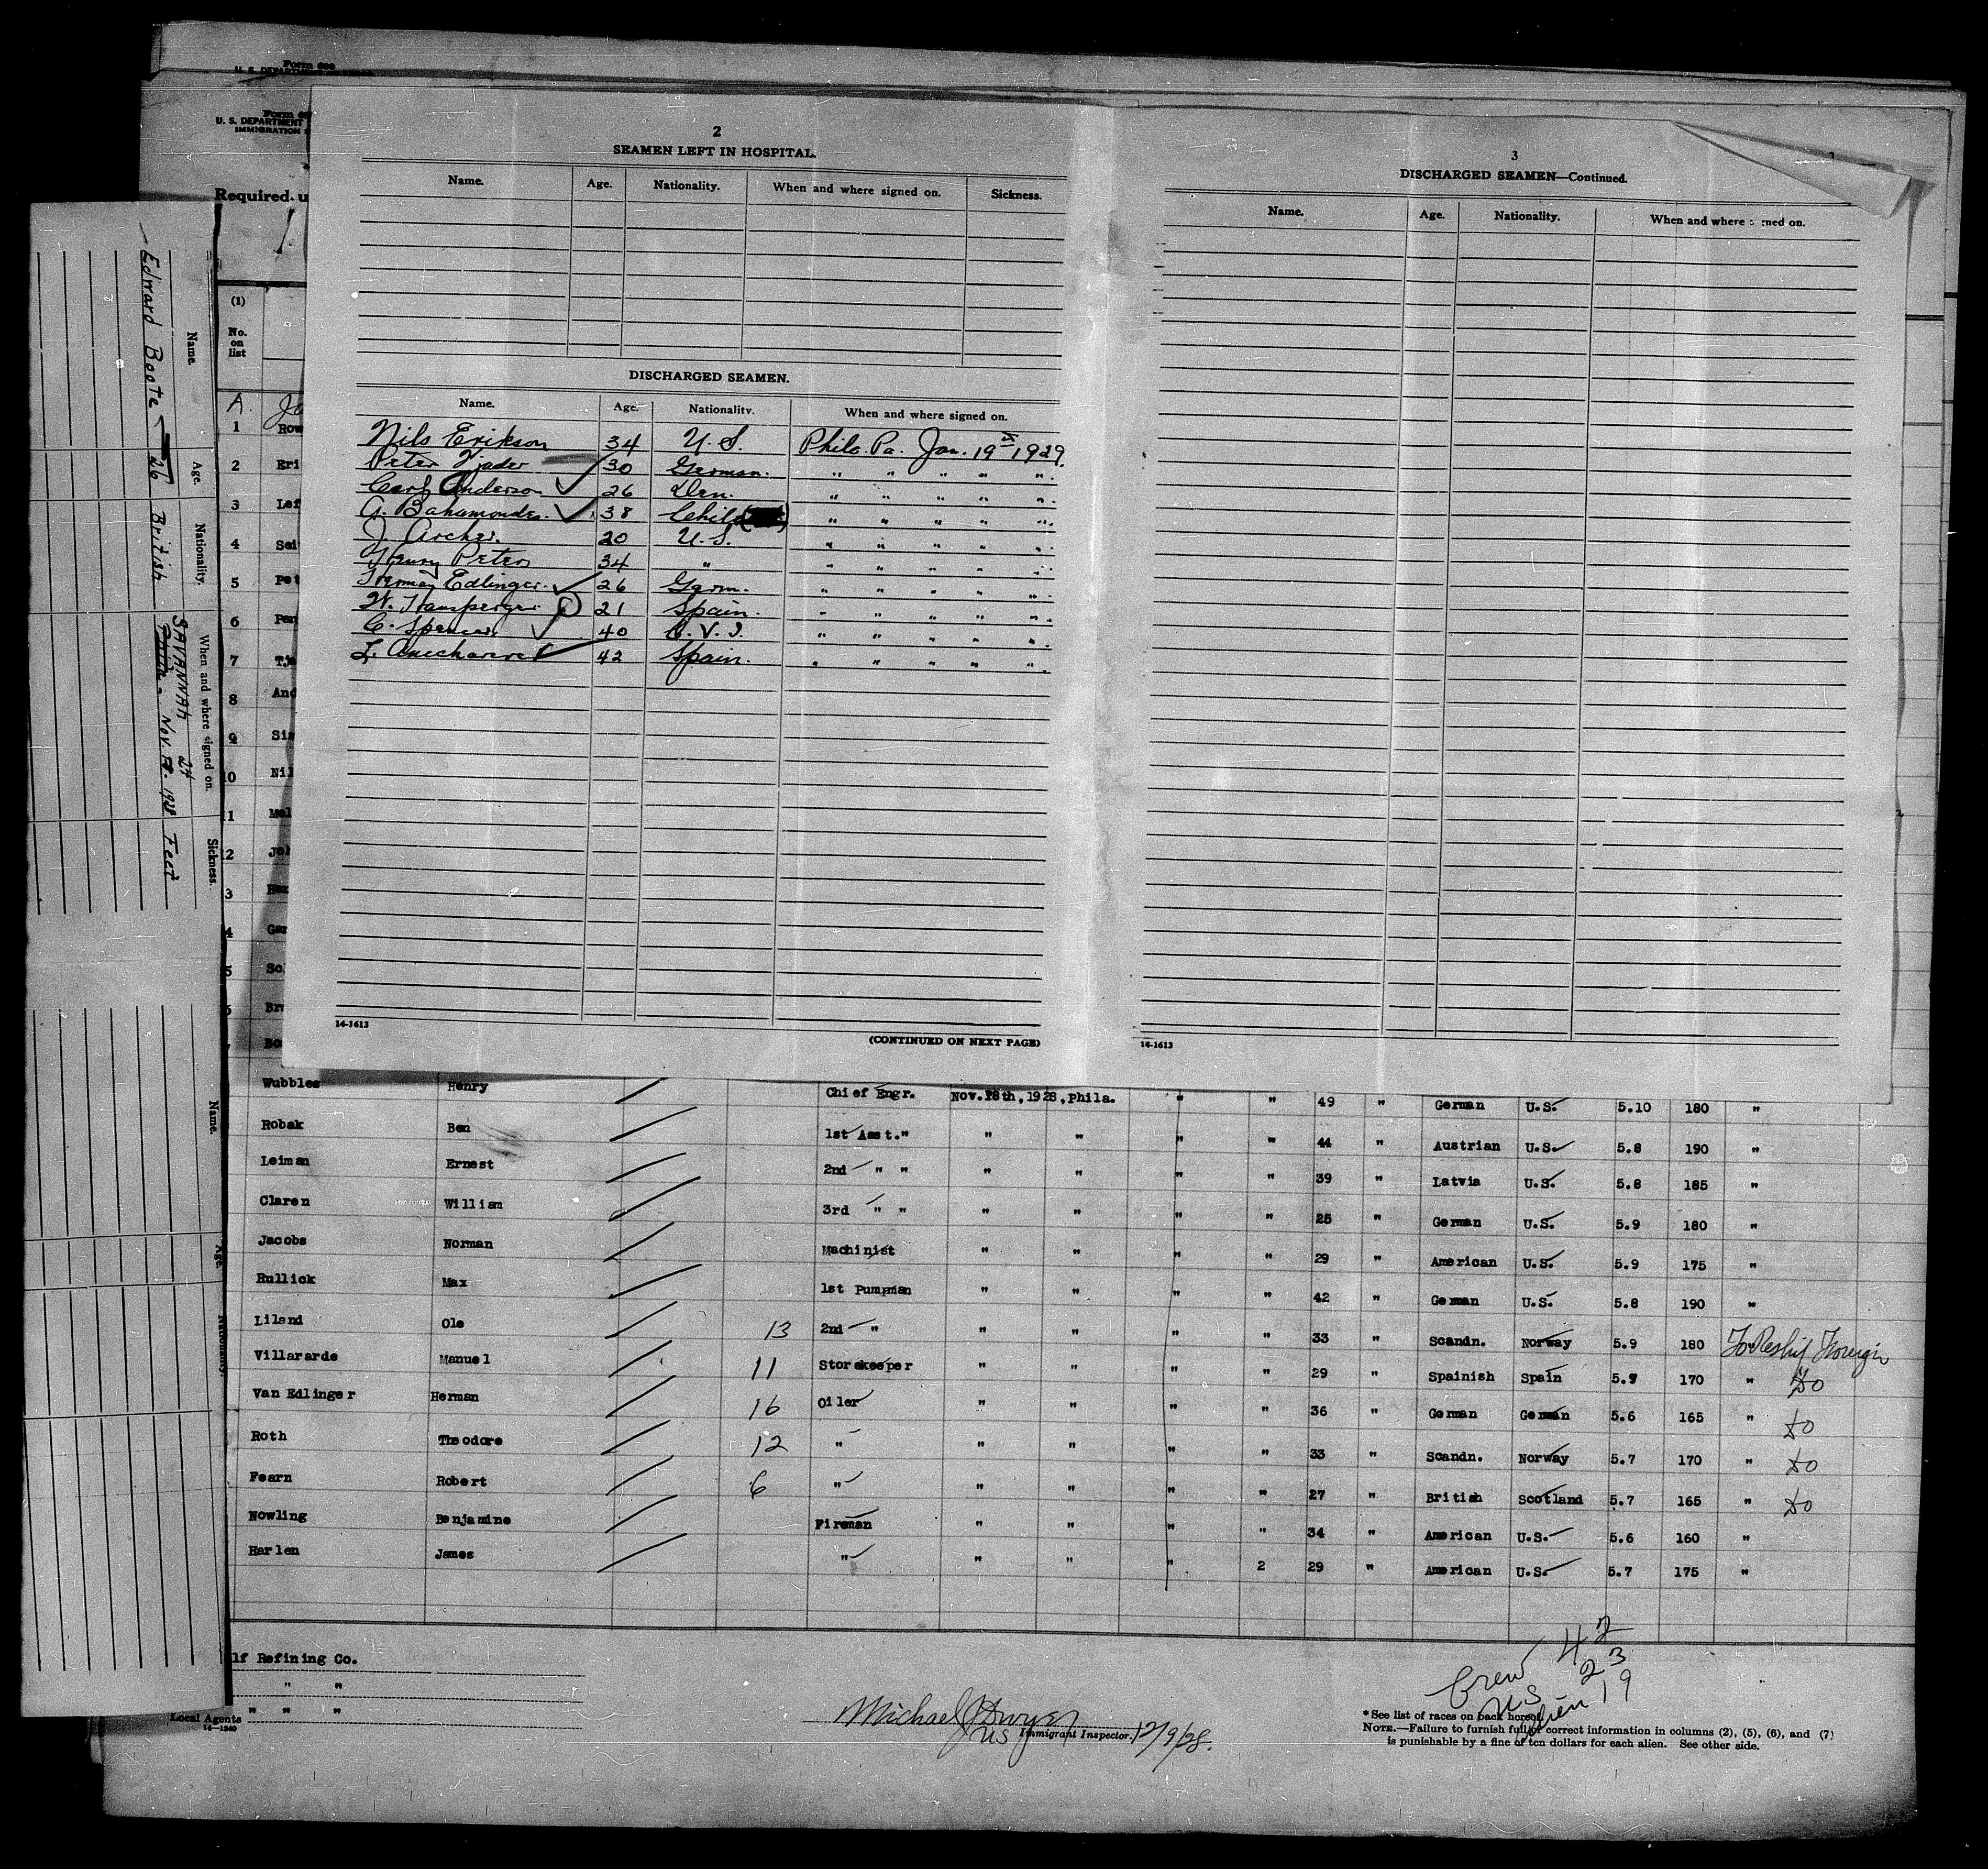 Form 680
U. S. DEPARTMENT
Form 680
U. S. DEPARTMENT
IMMIGRATION
Required u
(1)
No.
on
list
A. Jo
1 Row
2 Eri
3 Lef
4 Sei
5 Pet
6 Per
7 Tja
8 And
9 Sim
10 Nil
11 Mel
12 Joh
3
4 Gar
5 Sc
6 Br
7 Bo
Name. Age. Nationality. When and where signed on. Sickness.
Edward Boote 26 British SAVANNAH Nov. 24 1928 Feet
Name. Age. Nationality.
2
SEAMEN LEFT IN HOSPITAL.
Name. Age. Nationality. When and where signed on. Sickness.
DISCHARGED SEAMEN.
Name. Age. Nationality. When and where signed on.
Nils Erikson 34 U. S. Phila. Pa. Jan. 19th 1929.
Peter Tjader 30 German. " " " " ".
Carl Anderson 26 Den. " " " " ".
G. Bahamondes. 38 Chile " " " " ".
J. Archer. 20 U. S. " " " " ".
Henry Peters 34 " " " " " ".
Herman Edlinger. 26 Germ. " " " " ".
W. 21 Spain. " " " " ".
C. Spencer 40 B. V. I. " " " " ".
L. 42 Spain. " " " " ".
14-1613
(CONTINUED ON NEXT PAGE)
3
DISCHARGED SEAMEN—Continued.
Name. Age. Nationality. When and where signed on.
14-1613
Wubbles Henry Chief Engr. Nov.28th,1928,Phila. " " 49 " German U.S. 5.10 180 "
Robak Ben 1st Asst." " " " " 44 " Austrian U.S. 5.8 190 "
Leiman Ernest 2nd " " " " " " 39 " Latvia U.S. 5.8 185 "
Claren William 3rd " " " " " " 25 " German U.S. 5.9 180 "
Jacobs Norman Machinist " " " " 29 " American U.S. 5.9 175 "
Rullick Max 1st Pumpman " " " " 42 " German U.S. 5.8 190 "
Liland Ole 13 2nd " " " " " 33 " Scandn. Norway 5.9 180 " To Reship Foreign
Villararde Manuel 11 Storekeeper " " " " 29 " Spainish Spain 5.9 170 " Do
Van Edlinger Herman 16 Oiler " " " " 36 " German German 5.6 165 " Do
Roth Theodore 12 " " " " " 33 " Scandn. Norway 5.7 170 " Do
Fearn Robert 6 " " " " " 27 " British Scotland 5.7 165 " Do
Nowling Benjamine Fireman " " " " 34 " American U.S. 5.6 160 "
Harlen James " " " " 2 29 " American U.S. 5.7 175 "
lf Refining Co.
" "
" "
Local Agents
14—1240
Michael J Dwyer
US Immigrant Inspector. 12/9/28.
Crew 42
US 23
Alien 19
* See list of races on back hereof.
NOTE.—Failure to furnish full or correct information in columns (2), (5), (6), and (7)
is punishable by a fine of ten dollars for each alien. See other side.